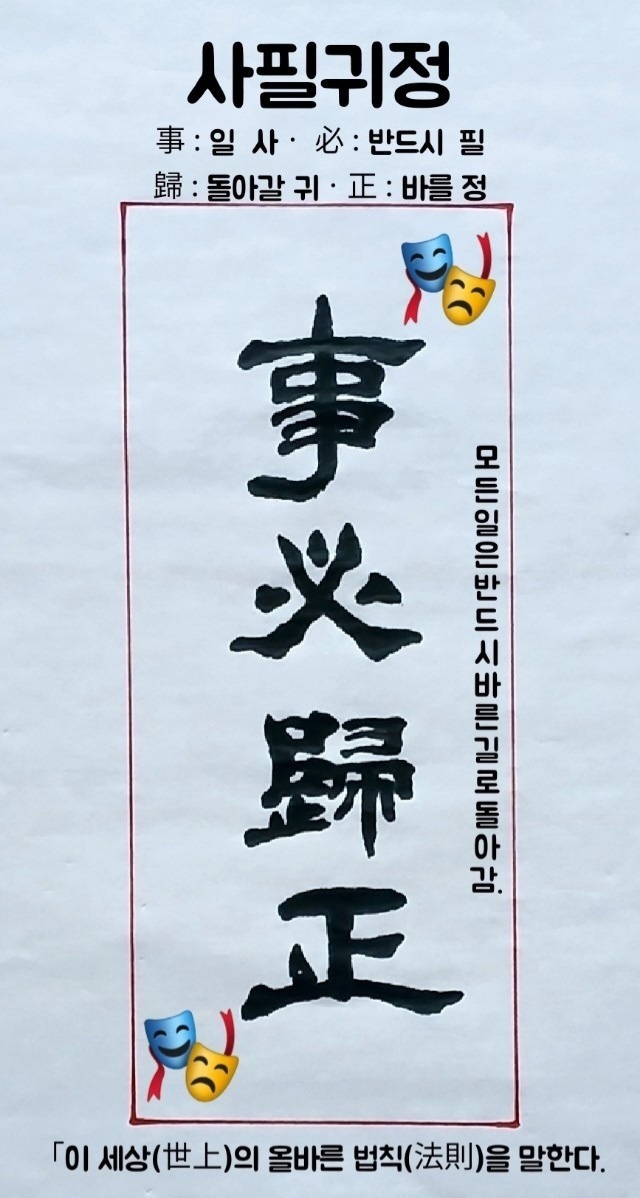 사필귀정
事 : 일 사 · 必 : 반드시 필
歸 : 돌아갈 귀 · 正 : 바를 정
事必歸正
모든일은반드시바른길로돌아감.
「이 세상(世上)의 올바른 법칙(法則)을 말한다.